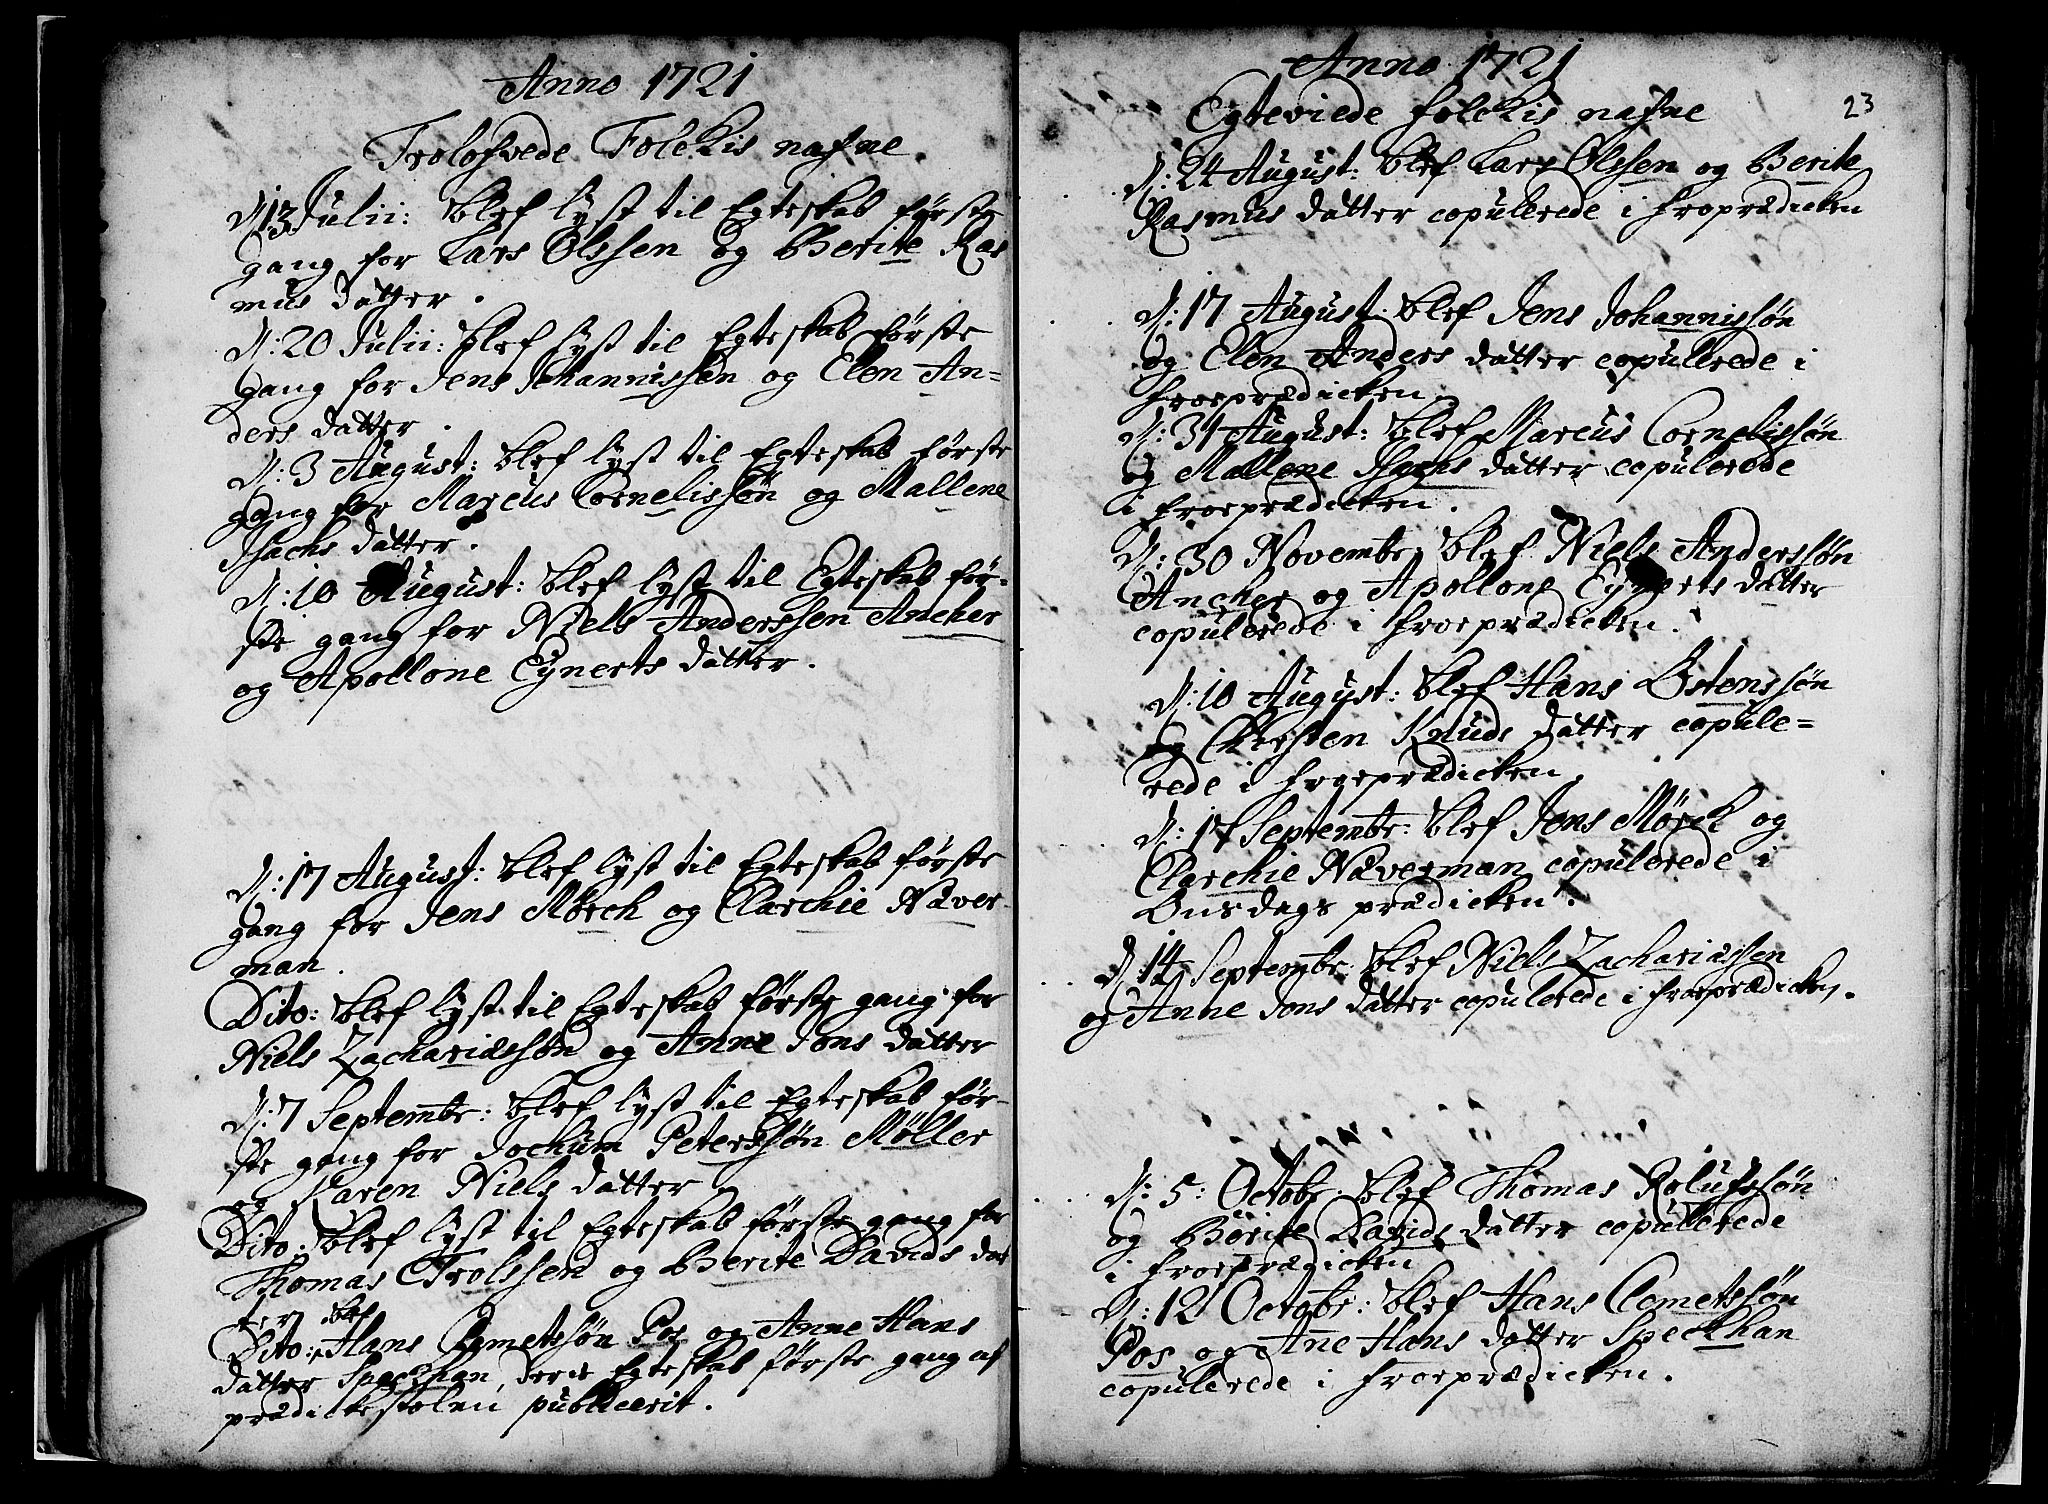 Anno 1721
Trolofvede Folckis nafne.
D: 13 Julii: blef lyst til Egteskab første
gang for Lars Olssen og Berite Ras
mus datter.
D: 20 Julii: blef lyst til Egteskab første
gang for Jens Johannissen og Elen An=
ders datter.
D: 3 August: blef lyst til Egteskab første
gang for Marcus Cornelissøn og Mallene
Isachs datter.
D: 10 August: blef lyst til Egteskab før-
ste gang for Niels Anderssen Ancher
og Apollone Eynerts datter.
D: 17 August: blef lyst til Egteskab første
gang for Jens Mørch og Clarchie Näver-
man.
Dito: blef lyst til Egteskab første gang for
Niels Zachariassøn og Anne Jons datter
D: 7 Septembr: blef lyst til Egteskab før-
ste gang for Jochum Peterssøn Møller
og Karen Niels datter
Dito: blef lyst til Egteskab første gang for
Thomas Trolssen og Berite Davids dat
ter blef
Dito: Hans Clemetssøn Pos og Anne Hans
datter Speckhan, deris Egteskab første gang af
prædickestolen publicerit.
Anno 1721
Egteviede folckis nafne
23
D: 24 August: blef Lars Olssen og Berite
Rasmus datter copulerede i froprædicken
D: 17 August: blef Jens Johannissøn
og Elen Anders datter copulerede i
froeprædicken.
D: 31 August: blef Marcus Cornelissøn
og Mallene Isachs datter copulerede
i froeprædicken.
D: 30 Novembr: blef Niels Anderssøn
Ancher og Apollone Eynerts datter
copulerede i froeprædicken.
D: 10 August: blef Hans Østenssøn
og Chersten Knuds datter copule=
rede i froeprædicken.
D: 17 Septembr: blef Jens Mørch og
Clarchie Näverman copulerede i
Onsdags prædicken.
D: 14 Septembr: blef Niels Zachariassen
og Anne Jons datter copulerede i froeprædicken.
D: 5: Octobr: blef Thomas Rolufssøn
og Børite Davids datter copullerede
i froeprædicken
D: 12 Octobr: blef Hans Clemetssøn
Pos og Añe Hans datter Speckhan
copulerede i froeprædicken.